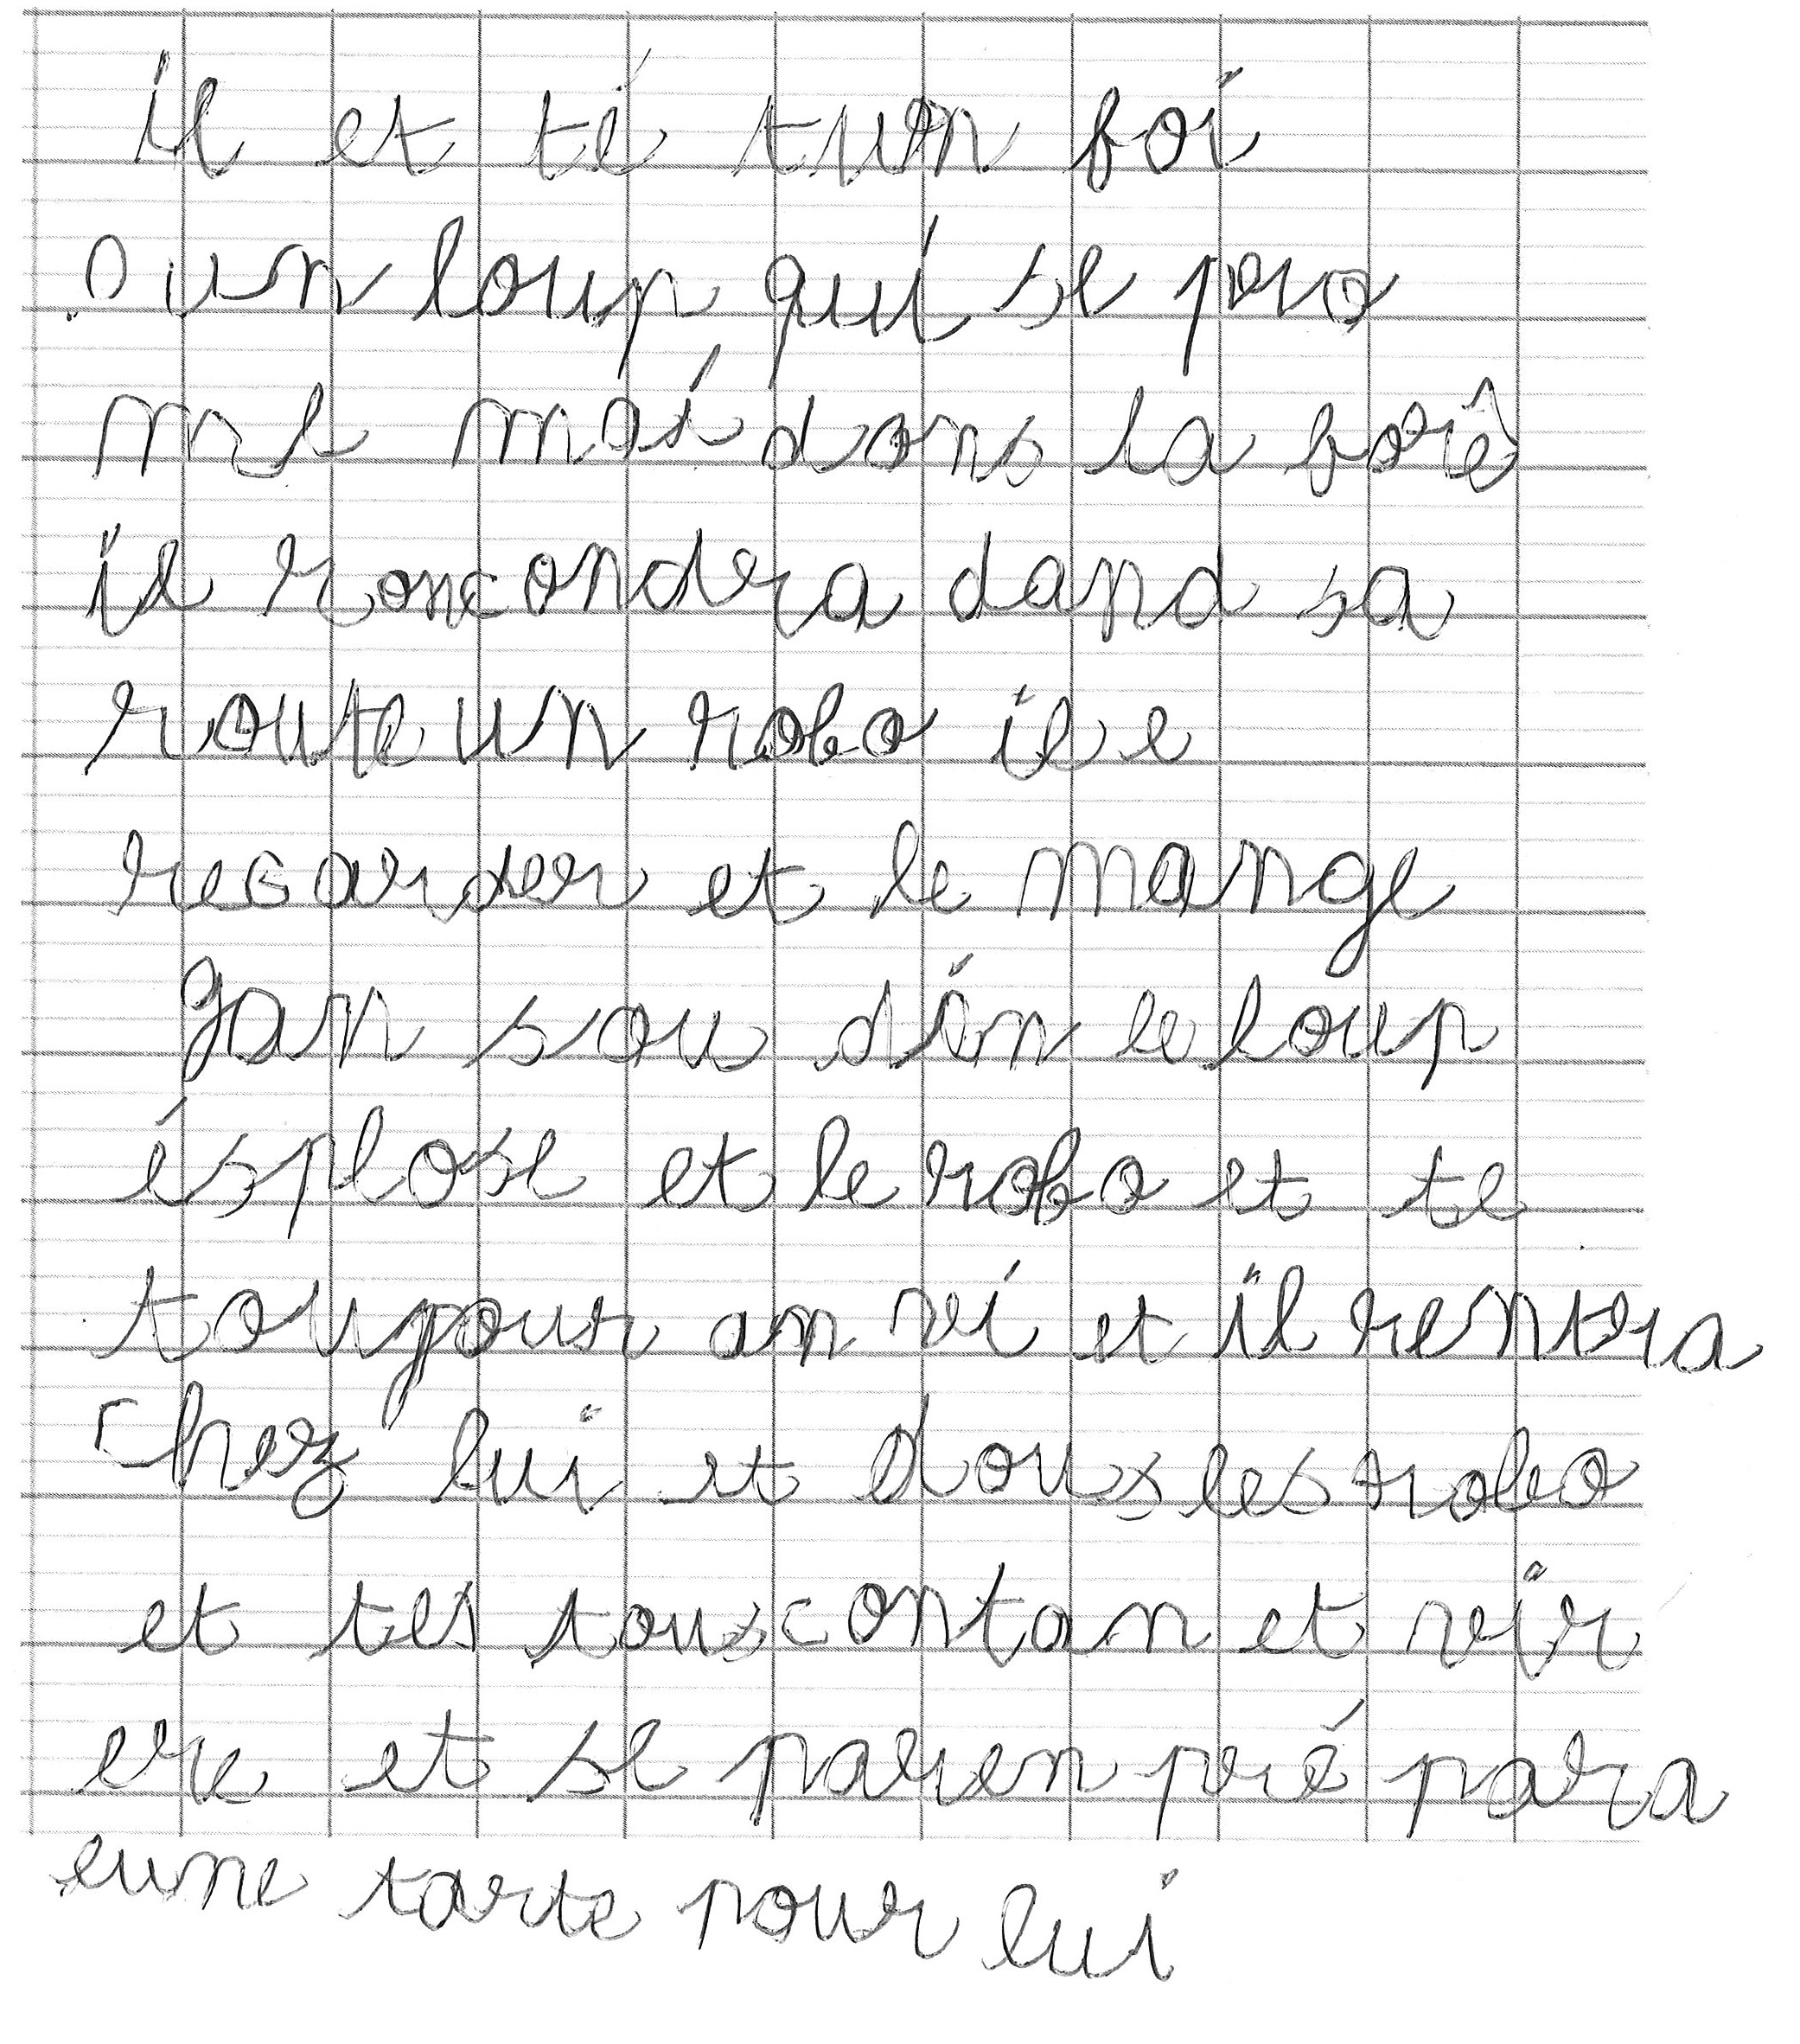 il et té tuen foi
un loup qui se pro
me mai dans la forê
il roncondera dand sa
route un robo il e
regarder et le mange
gan sou din le loup
ésplose et le robo et te
toujour an vi et il rentra
chez lui et dous les robo
et tes tous contan et vir
ere et se paren pré para
eune tarte pour lui